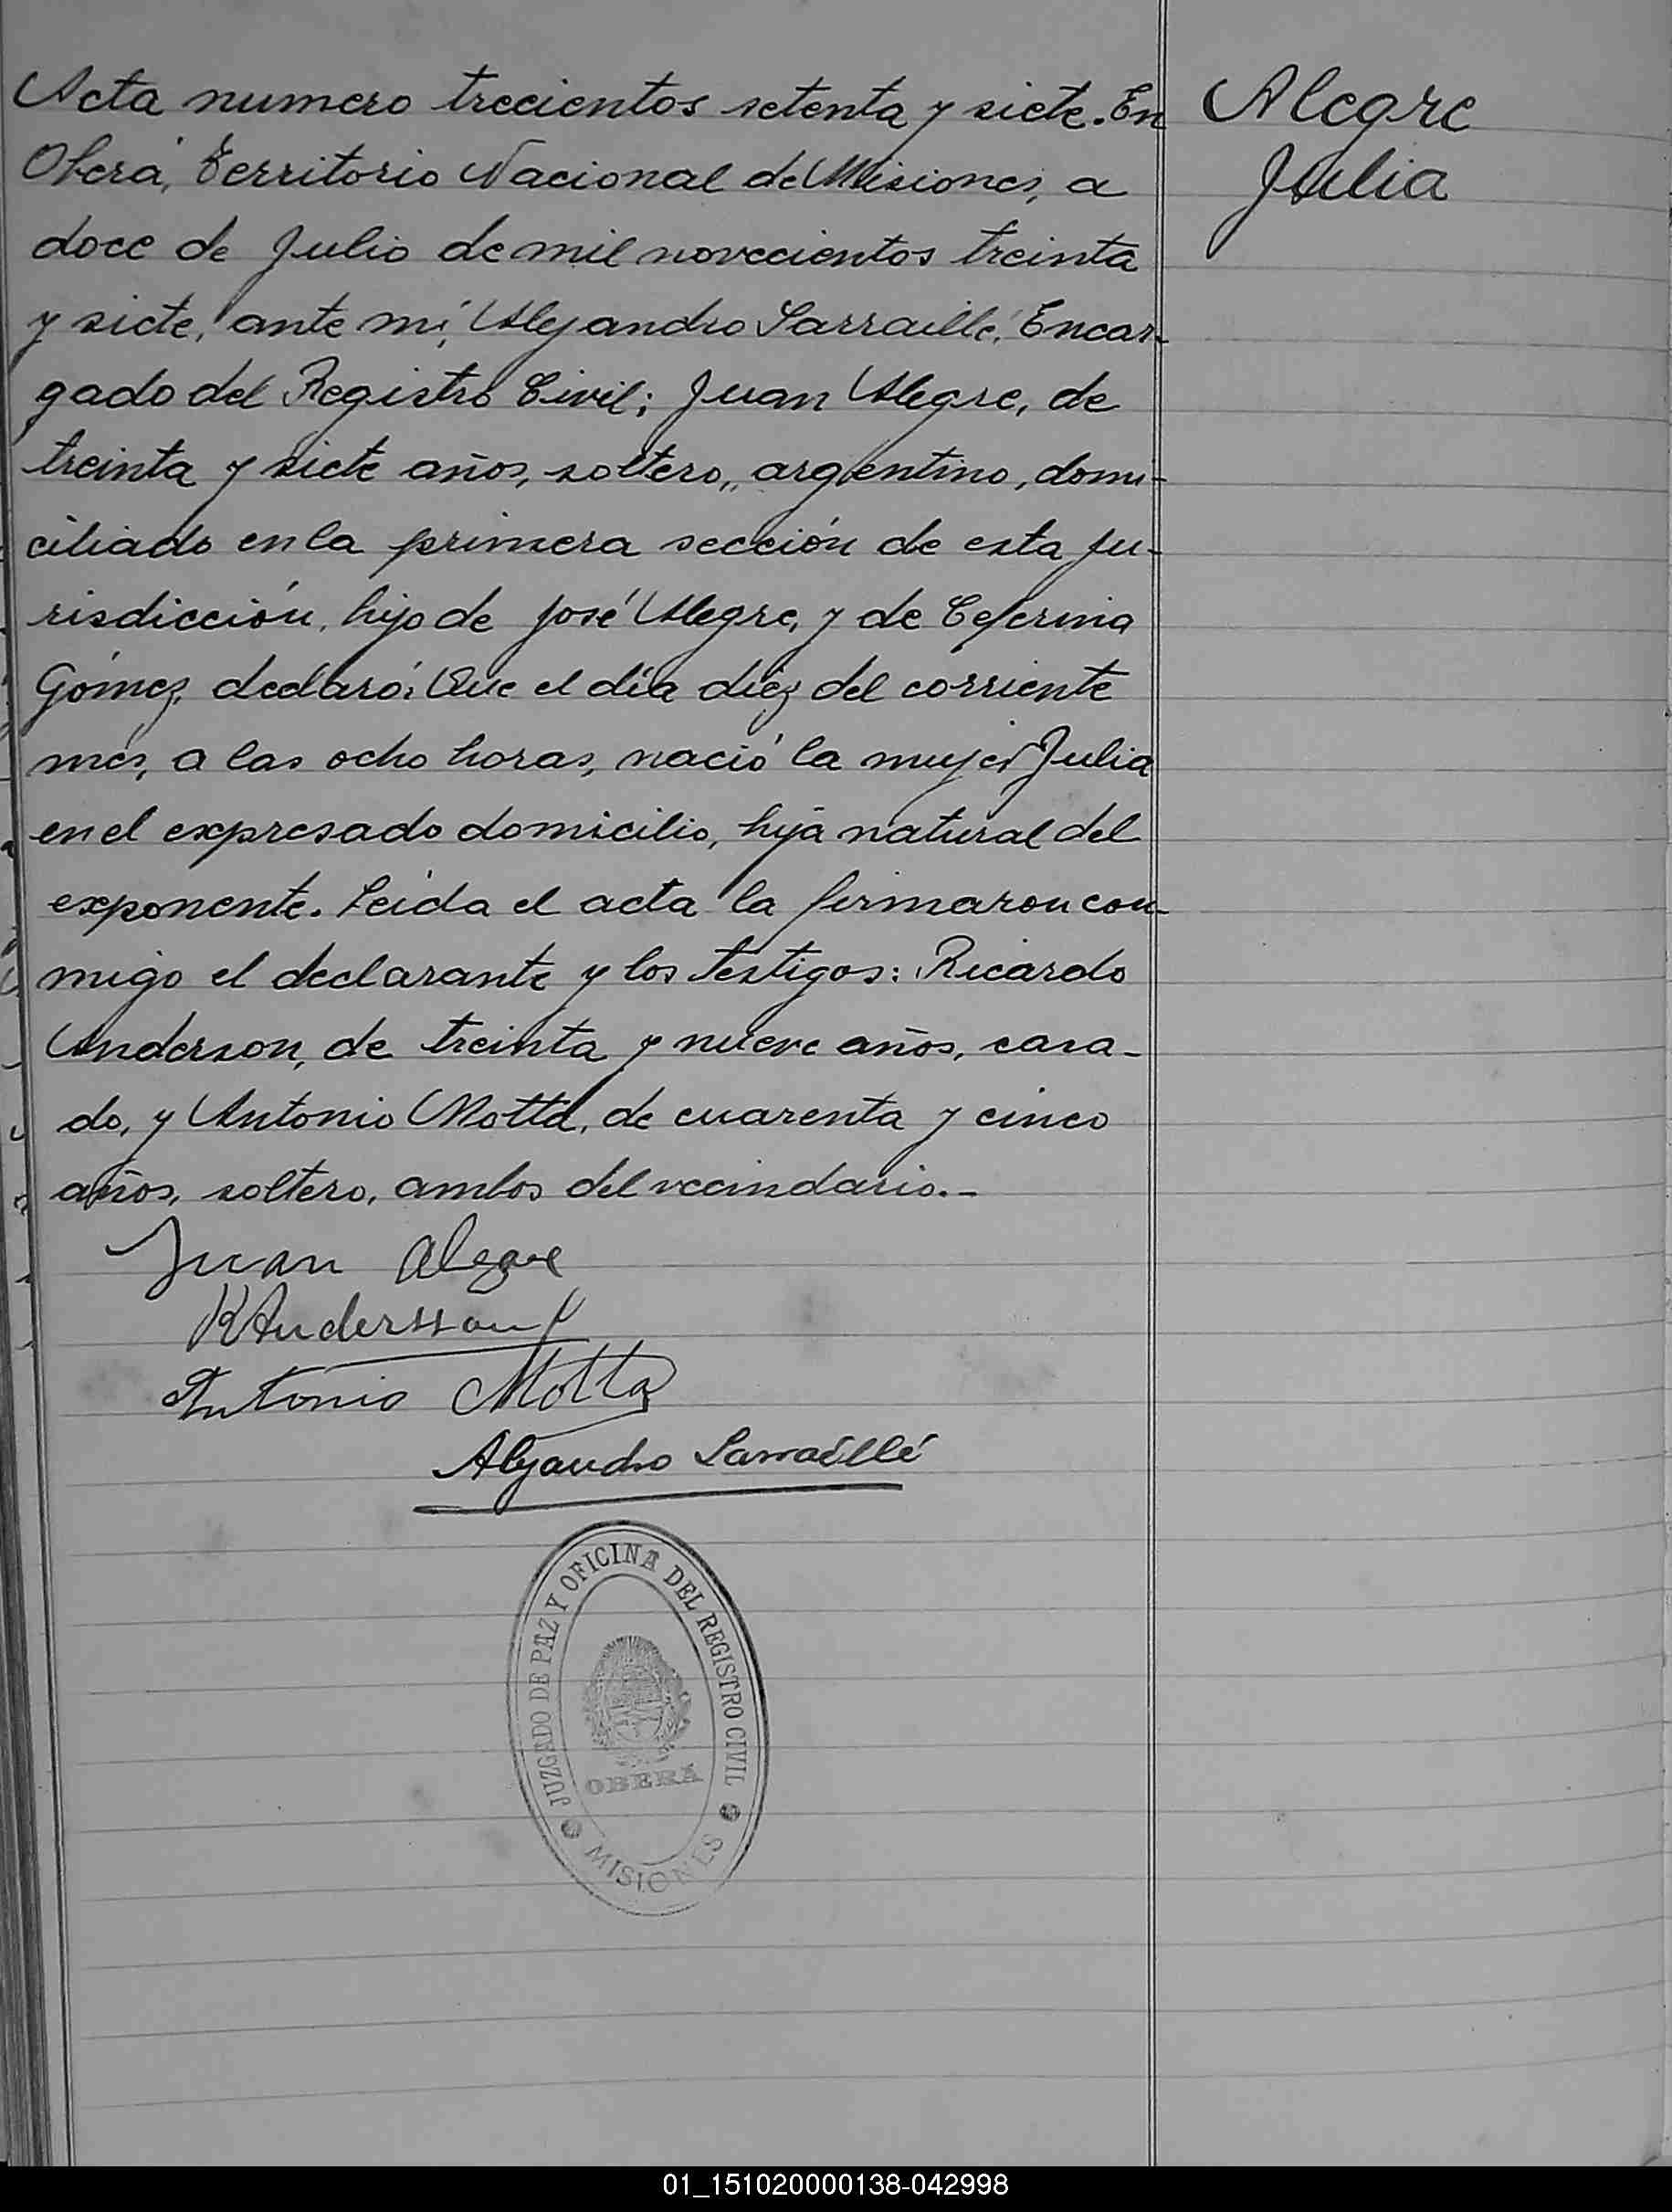 Acta numero trecientos setenta y siete. En
Oberá, Territorio Nacional de Misiones, a
doce de Julio de mil novecientos treinta
y siete, ante mí, Alejandro Sarraillé, Encar-
gado del Registro Civil; Juan Alegre, de
treinta y siete años, soltero, argentino, domi-
ciliado en la primera sección de esta ju-
risdicción, hijo de José Alegre, y de Ceferina
Gómez, declaró: Que el día diéz del corriente
mes, a las ocho horas, nació la mujer Julia
en el expresado domicilio, hija natural del
exponente. Leida el acta la firmaron con-
migo el declarante y los testigos: Ricardo
Anderson, de treinta y nueve años, casa-
do, y Antonio Motta, de cuarenta y cinco
años, soltero, ambos del vecindario.-
Juan Alegre
RAndersson
Antonio Motta
Alejandro Sarraillé
Alegre
Julia
JUZGADO DE PAZ Y OFICINA DEL REGISTRO CIVIL
OBERÁ
MISIONES
01_151020000138-042998